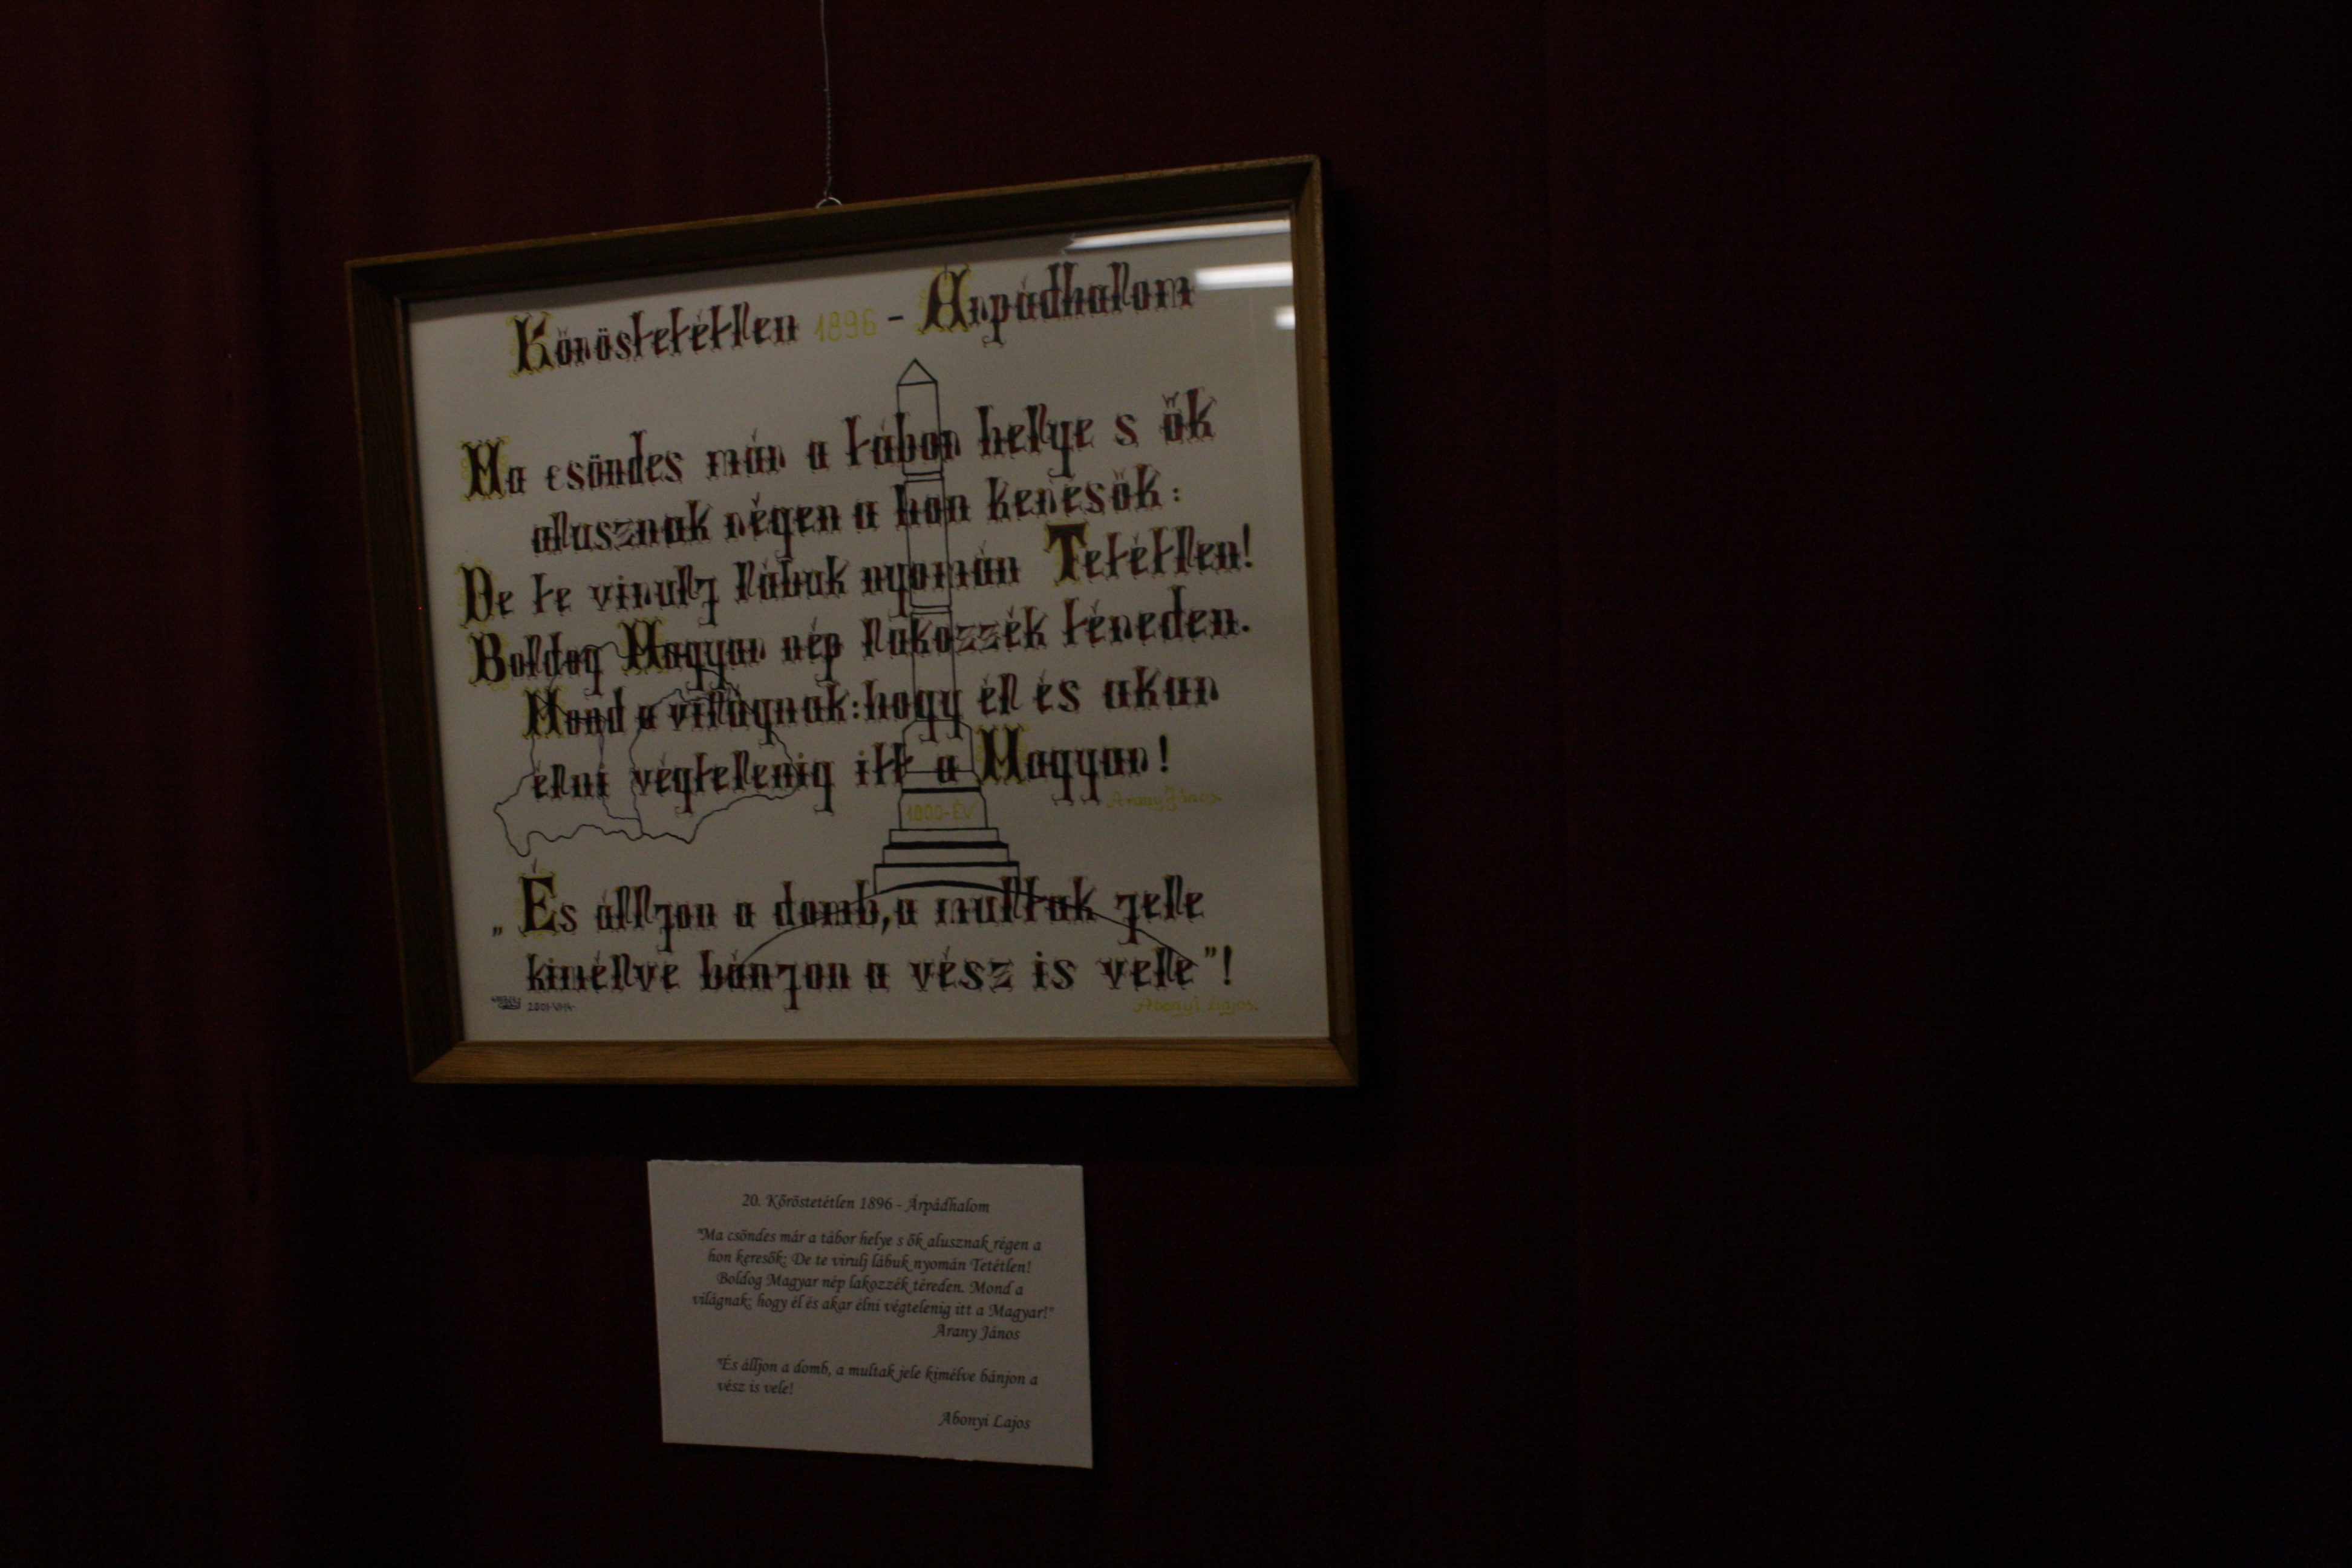 Kőröstetétlen 1896 - Árpádhalom
Ma csöndes már a tábor helye s ők
alusznak régen a hon keresők:
De te virulj lábuk nyomán Tetétlen!
Boldog Magyar nép lakozzék téreden.
Mond a világnak: hogy él és akar
élni végtelenig itt a Magyar!
Arany János
1000-ÉV
„És álljon a domb, a multak jele
kimélve bánjon a vész is vele"!
Abonyi Lajos
20. Kőröstetétlen 1896 - Árpádhalom
"Ma csöndes már a tábor helye s ők alusznak régen a
hon keresők: De te virulj lábuk nyomán Tetétlen!
Boldog Magyar nép lakozzék téreden. Mond a
világnak: hogy él és akar élni végtelenig itt a Magyar!"
Arany János
"És álljon a domb, a multak jele kimélve bánjon a
vész is vele!
Abonyi Lajos